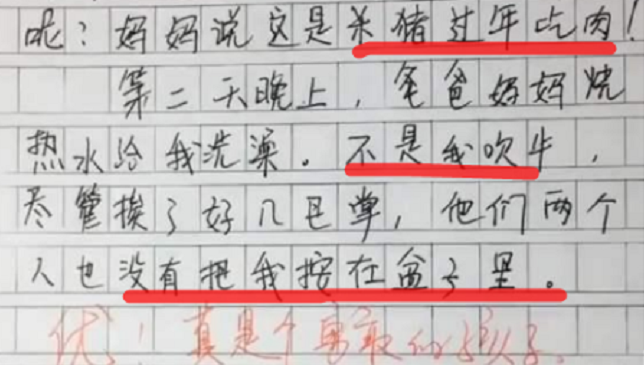 呢？妈妈说这是杀猪过年吃肉！
第二天晚上，爸爸妈妈烧
热水给我洗澡。不是我吹牛，
尽管挨了好几巴掌，他们两个
人也没有把我按在盆子里。
优！真是个勇敢的孩子。